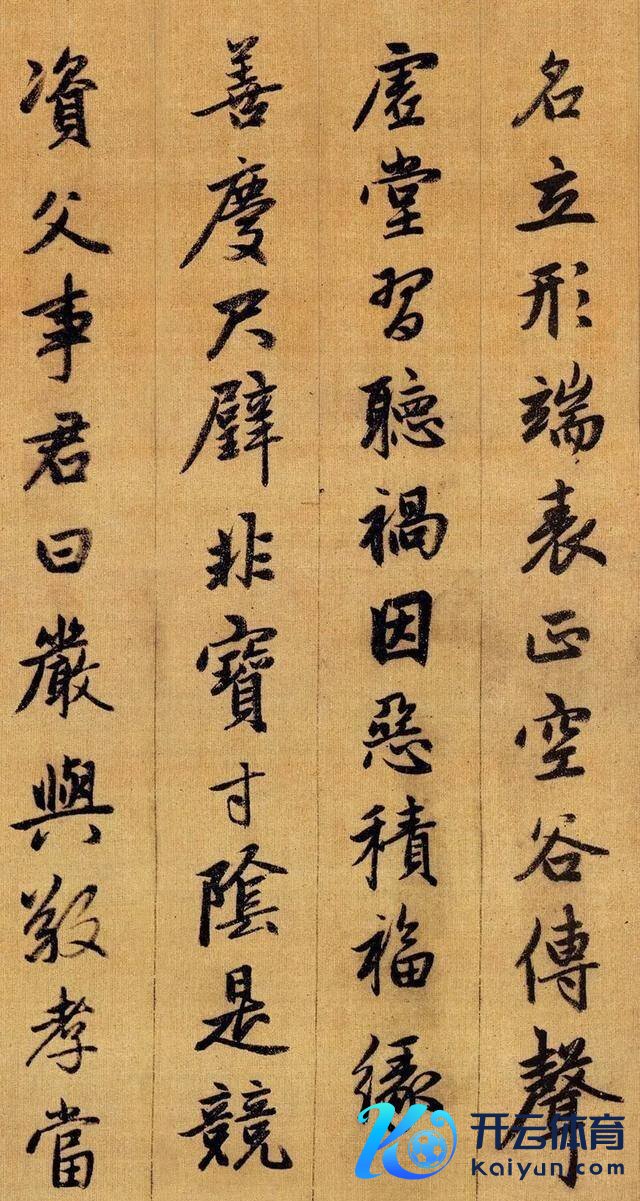 名立形端表正空谷傳聲
虛堂習聽禍因惡積福緣
善慶尺璧非寶寸陰是競
資父事君曰嚴與敬孝當
开云体育
kaiyun.com